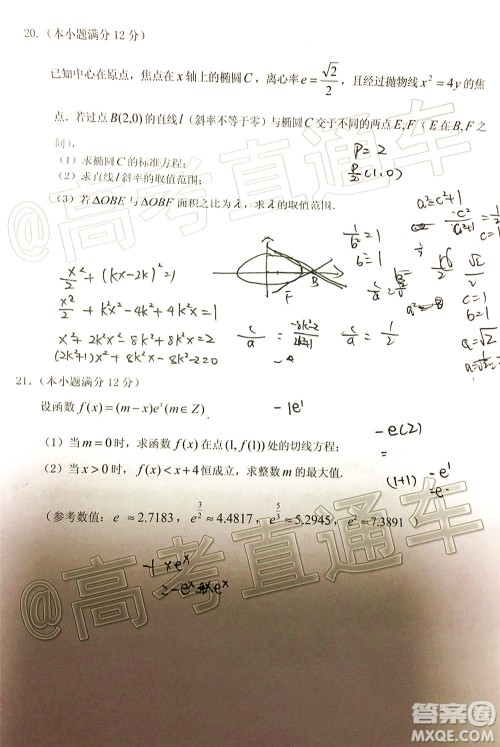 20.（本小题满分 12 分）
已知中心在原点，焦点在 x 轴上的椭圆 C，离心率 e = √2/2，且经过抛物线 x² = 4y 的焦
点．若过点 B(2,0) 的直线 l（斜率不等于零）与椭圆 C 交于不同的两点 E, F（E 在 B, F 之
间）．
P = 2
（1）求椭圆 C 的标准方程；
（2）求直线 l 斜率的取值范围；
（3）若 ΔOBE 与 ΔOBF 面积之比为 λ，求 λ 的取值范围．
a² = c²+1
1/b² = 1
b = 1
c = 1
b = 1
a = √2
x²/2 + (kx-2k)² = 1
x²/2 + k²x² - 4k² + 4k² = 1
x² + 2k²x² - 8k² + 8k² = 2
(2k²+1)x² + 8k² - 8k² - 2 = 0
F
B
c/a = 1/2
21.（本小题满分 12 分）
设函数 f(x) = (m − x)eˣ (m ∈ Z)
（1）当 m = 0 时，求函数 f(x) 在点 (1, f(1)) 处的切线方程；
（2）当 x > 0 时，f(x) < x + 4 恒成立，求整数 m 的最大值．
（参考数值：e ≈ 2.7183，e^(3/2) ≈ 4.4817，e^(5/3) ≈ 5.2945，e² ≈ 7.3891 ）
-1e¹
-e(2)
=
(1+1) -e¹
-1 xeˣ
@高考直通车
@高考直通车
答案圈
MXQE.COM